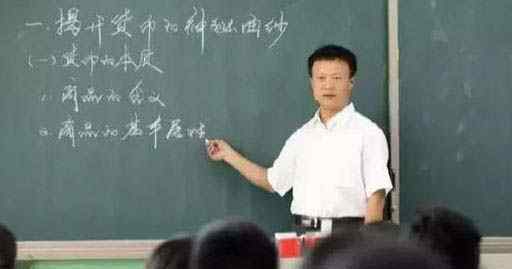 一.揭开货币的神秘面纱
(一)货币的本质
1.商品的含义
2.商品的基本属性